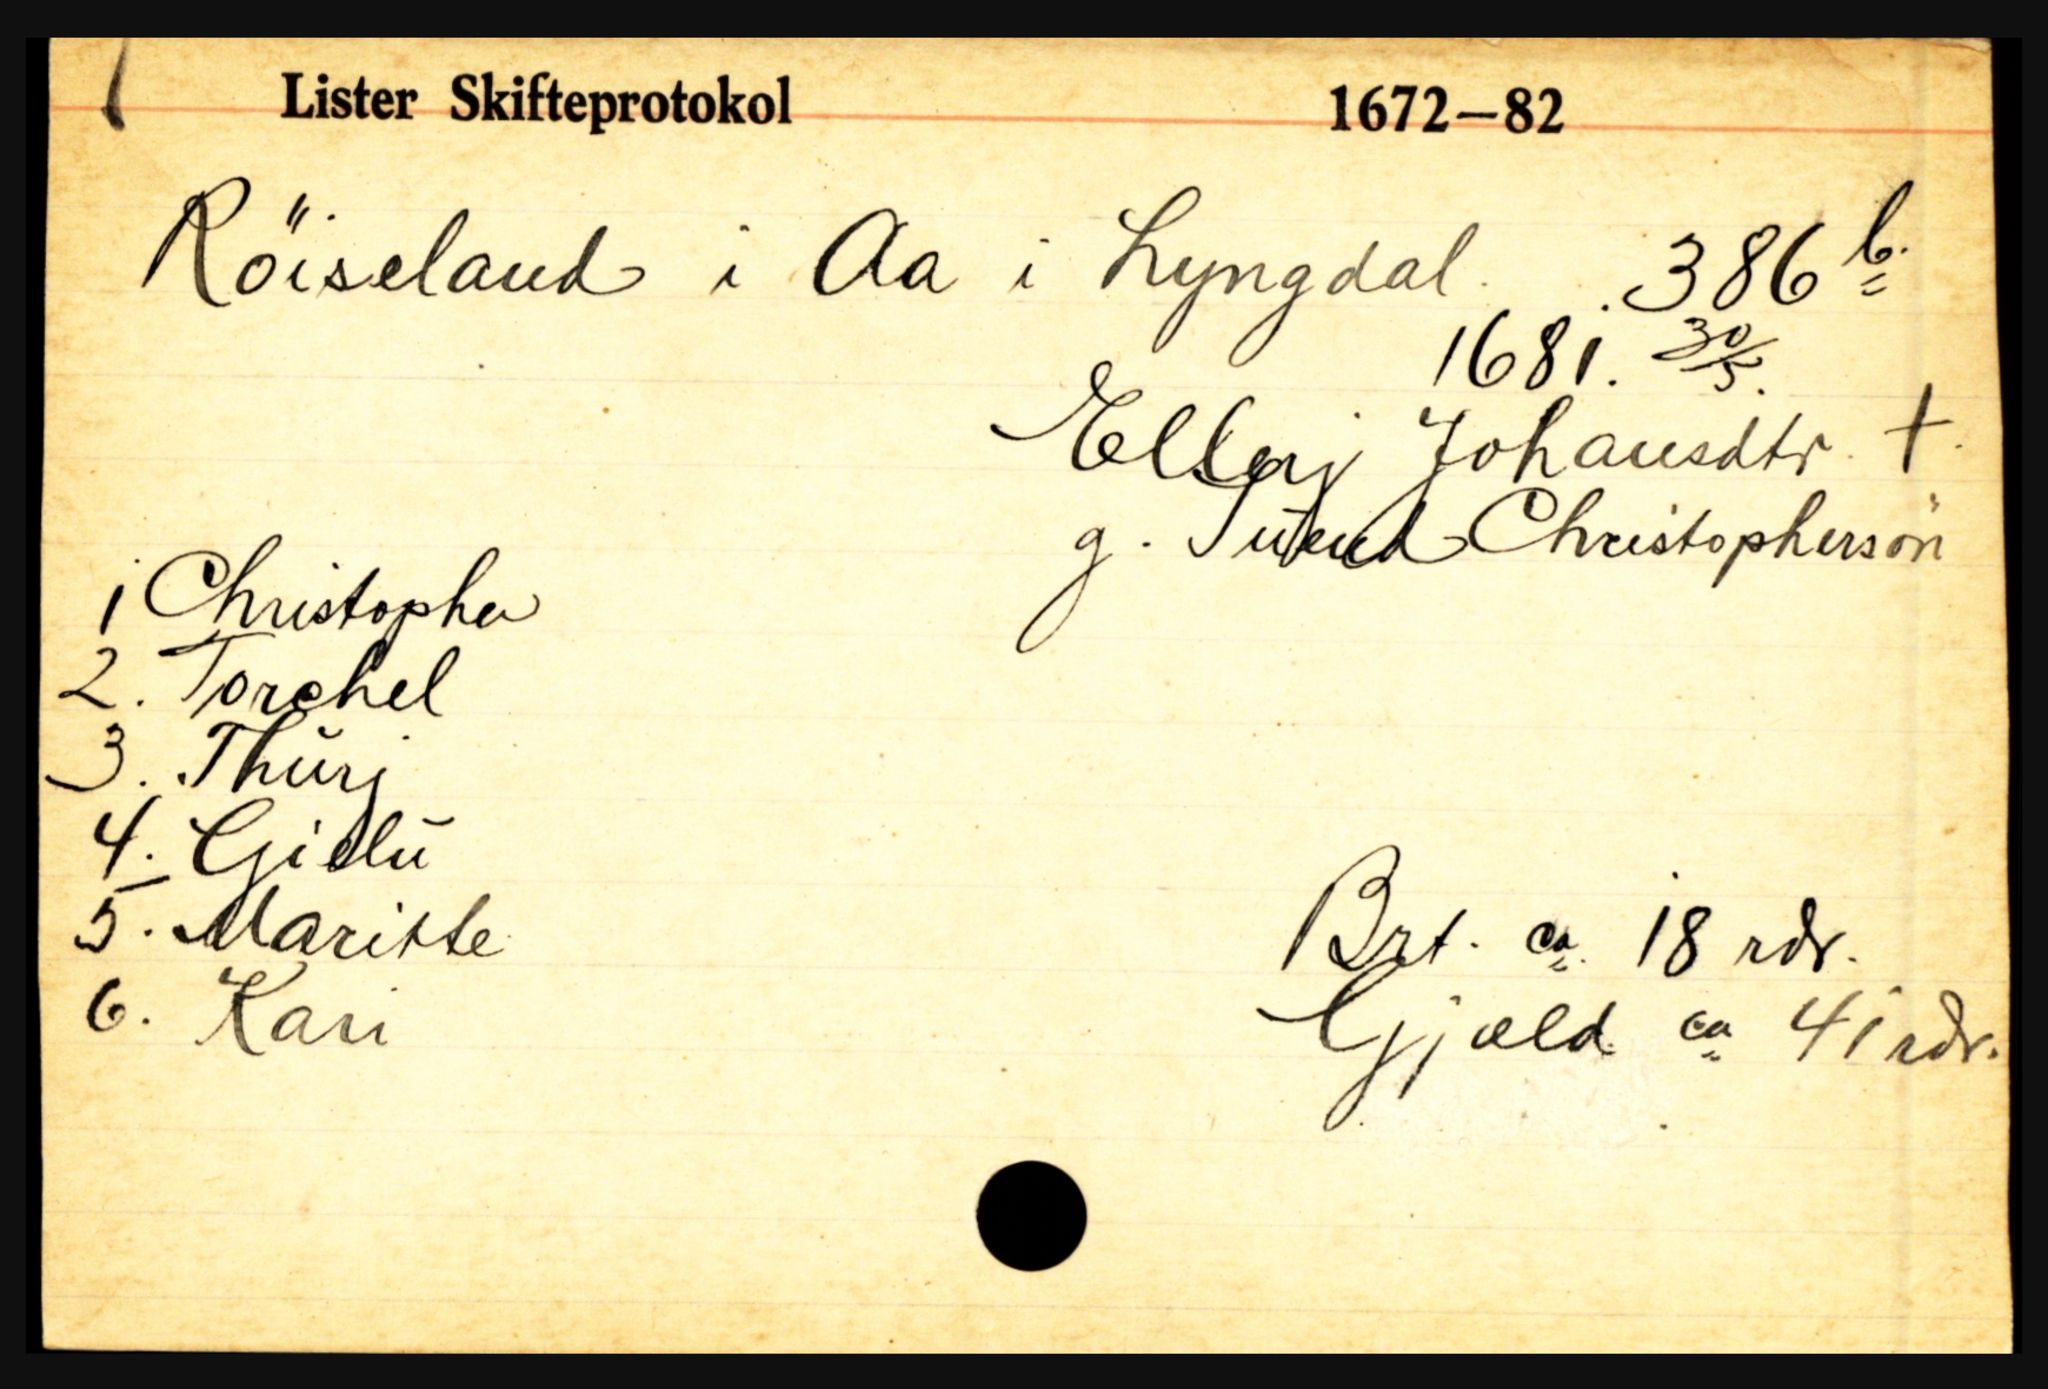 Lister Skifteprotokol 1672–82
Röiseland i Aa i Lyngdal. 386 b.
1681. 30/5.
Ellerj Johansdtr. †.
g. Siuend Christophersön
1 Christopher
2. Torchel
3. Thūrj
4. Gidlū
5. Maritte
6. Kari
Brt. ca. 18 rdr.
Gjæld ca 41 rdr.